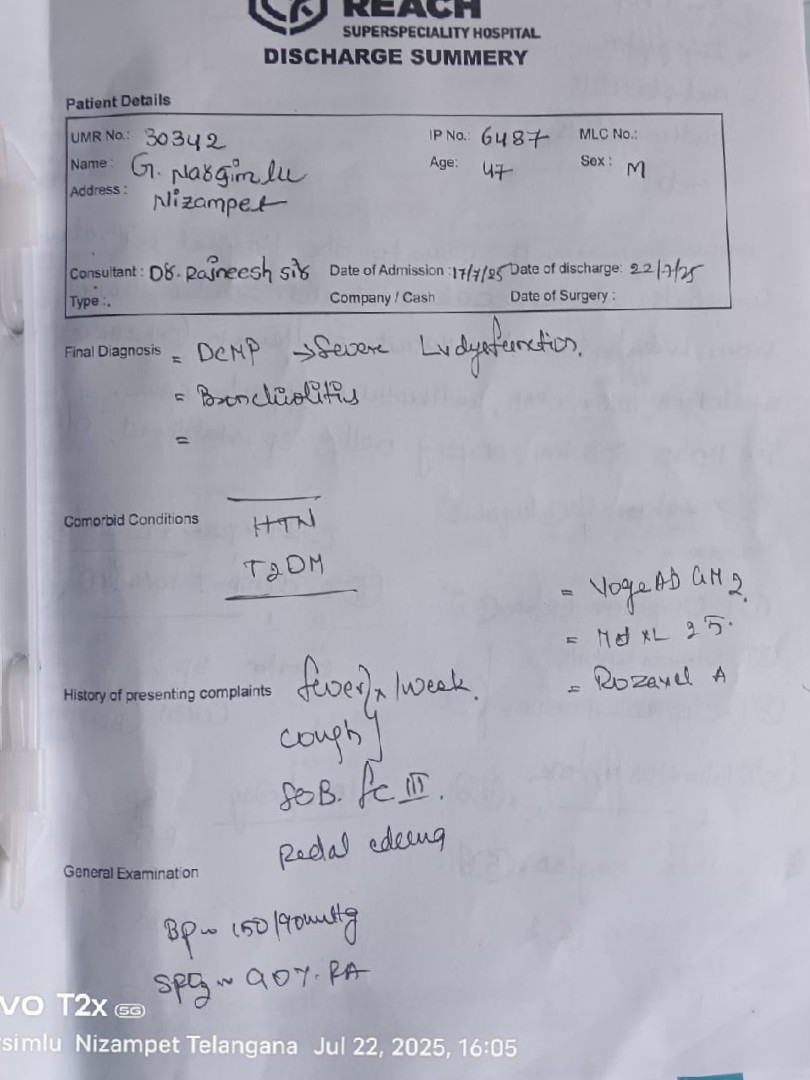 REACH
SUPERSPECIALITY HOSPITAL
DISCHARGE SUMMERY
Patient Details
UMR No.: 30342 IP No.: 6487 MLC No.:
Name: G. Narsimlu Age: 47 Sex: M
Address: Nizampet
Consultant: Dr. Rajneesh sir Date of Admission: 17/7/25 Date of discharge: 22/7/25
Type: Company / Cash Date of Surgery:
Final Diagnosis = DCMP → Severe LV dysfunction.
= Bronchiolitis
=
Comorbid Conditions HTN
T2DM
= Voge AD GM 2.
= Met XL 25.
= Rozavel A
History of presenting complaints fever } x 1 week.
cough
SOB. fc III.
Pedal edema
General Examination
BP ~ 150/90mmHg
SPO2 ~ 90%. RA
vo T2x 5G
simlu Nizampet Telangana Jul 22, 2025, 16:05